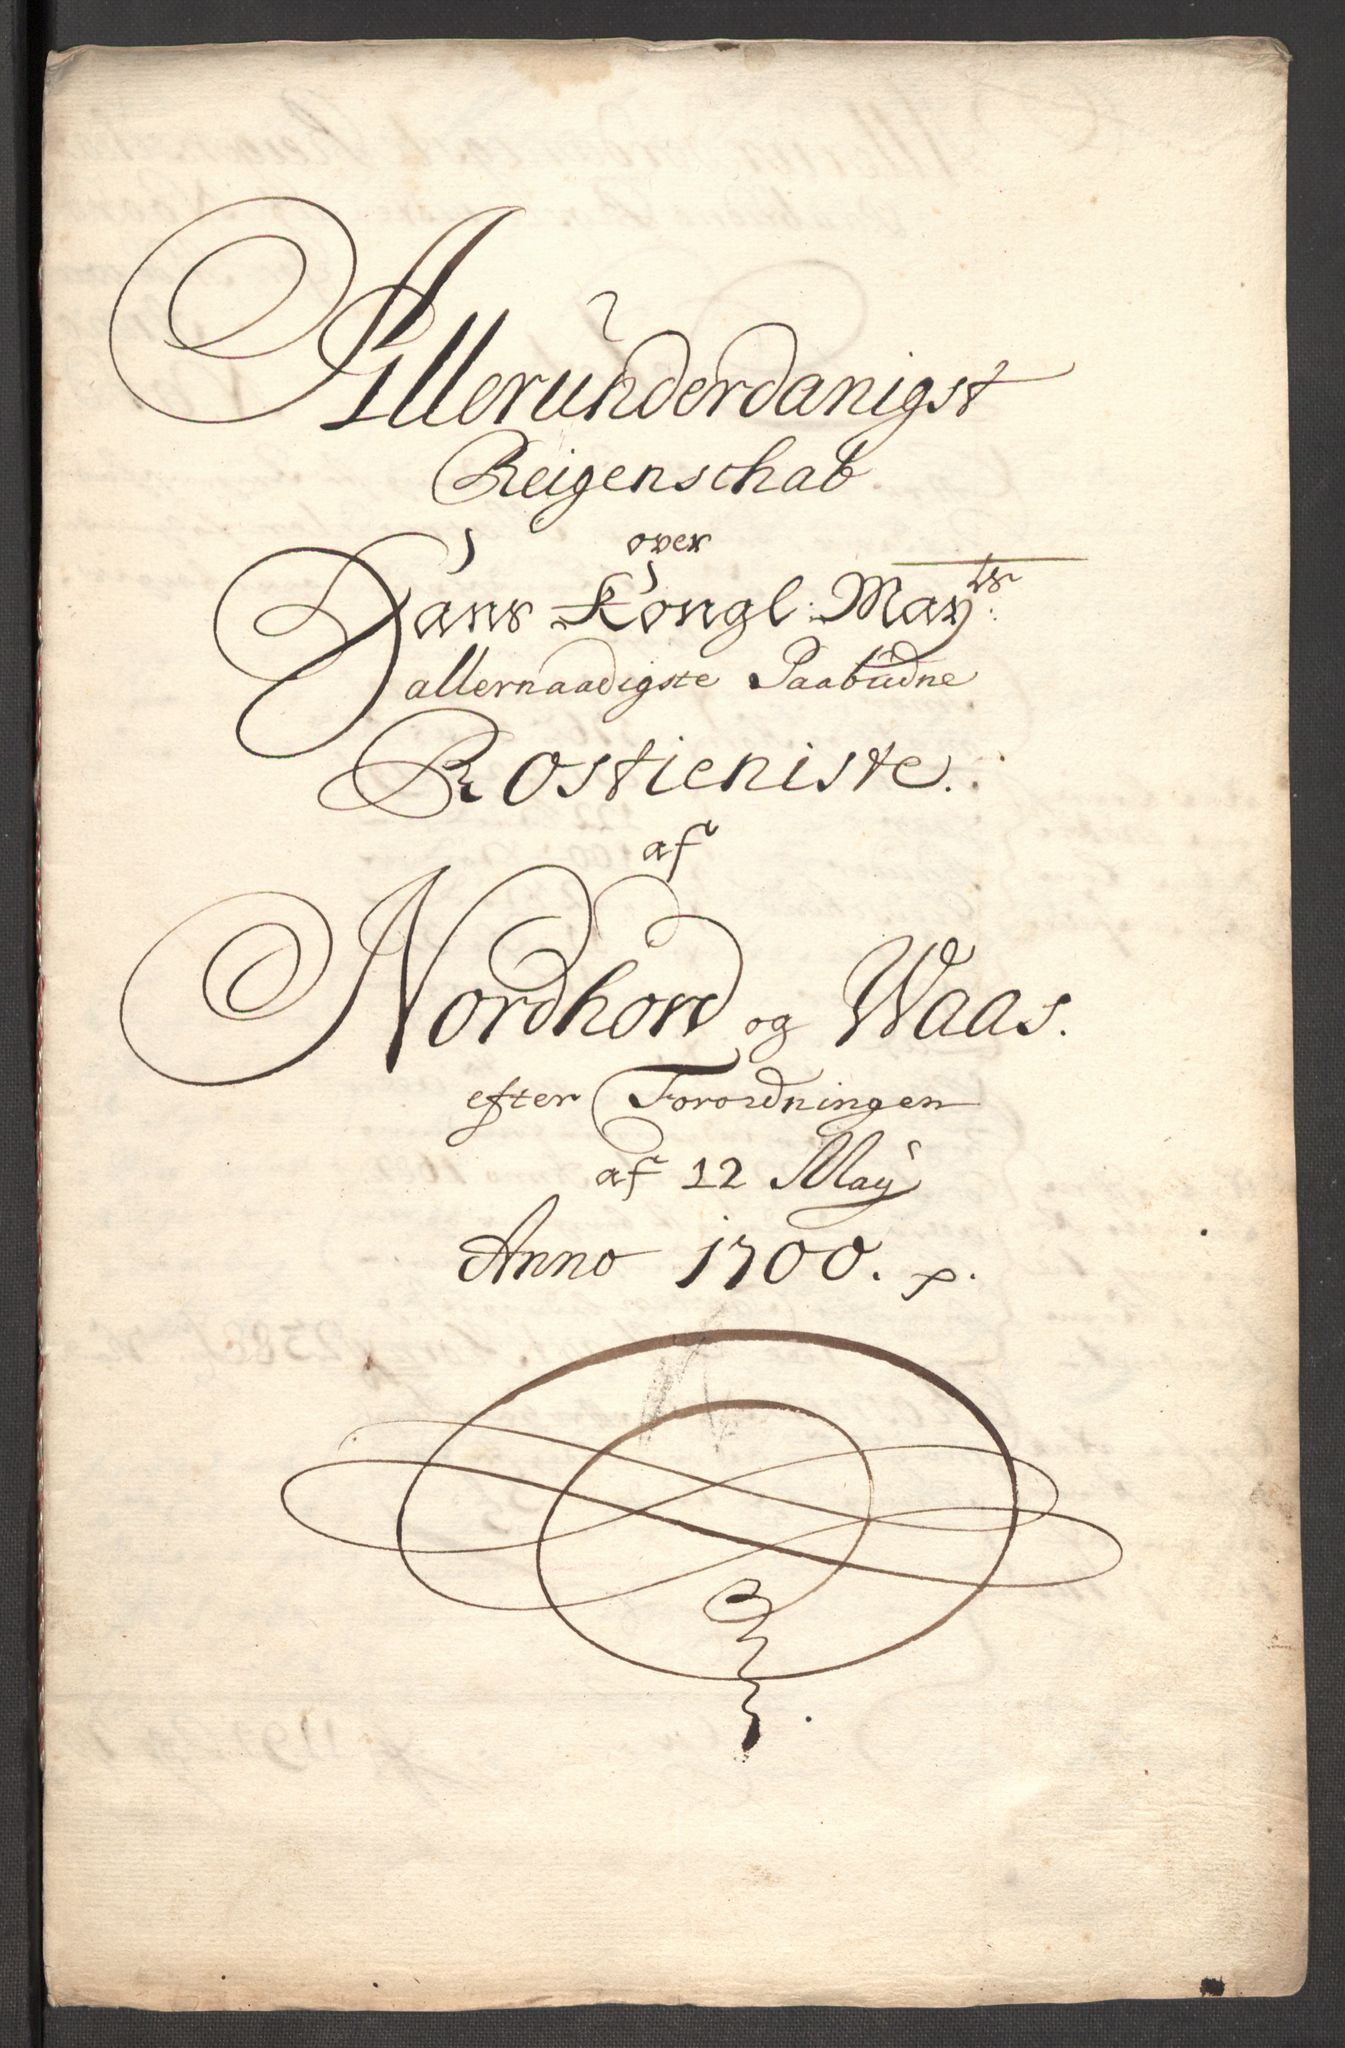 Allerunderdanigst
Reigenschab
over
Hans Kongl: Mayts:
allernaadigste Paabudne
Rostieniste.
af
Nordhord og Waas.
efter Forordningen
af 12 Maÿ
Anno 1700. p.